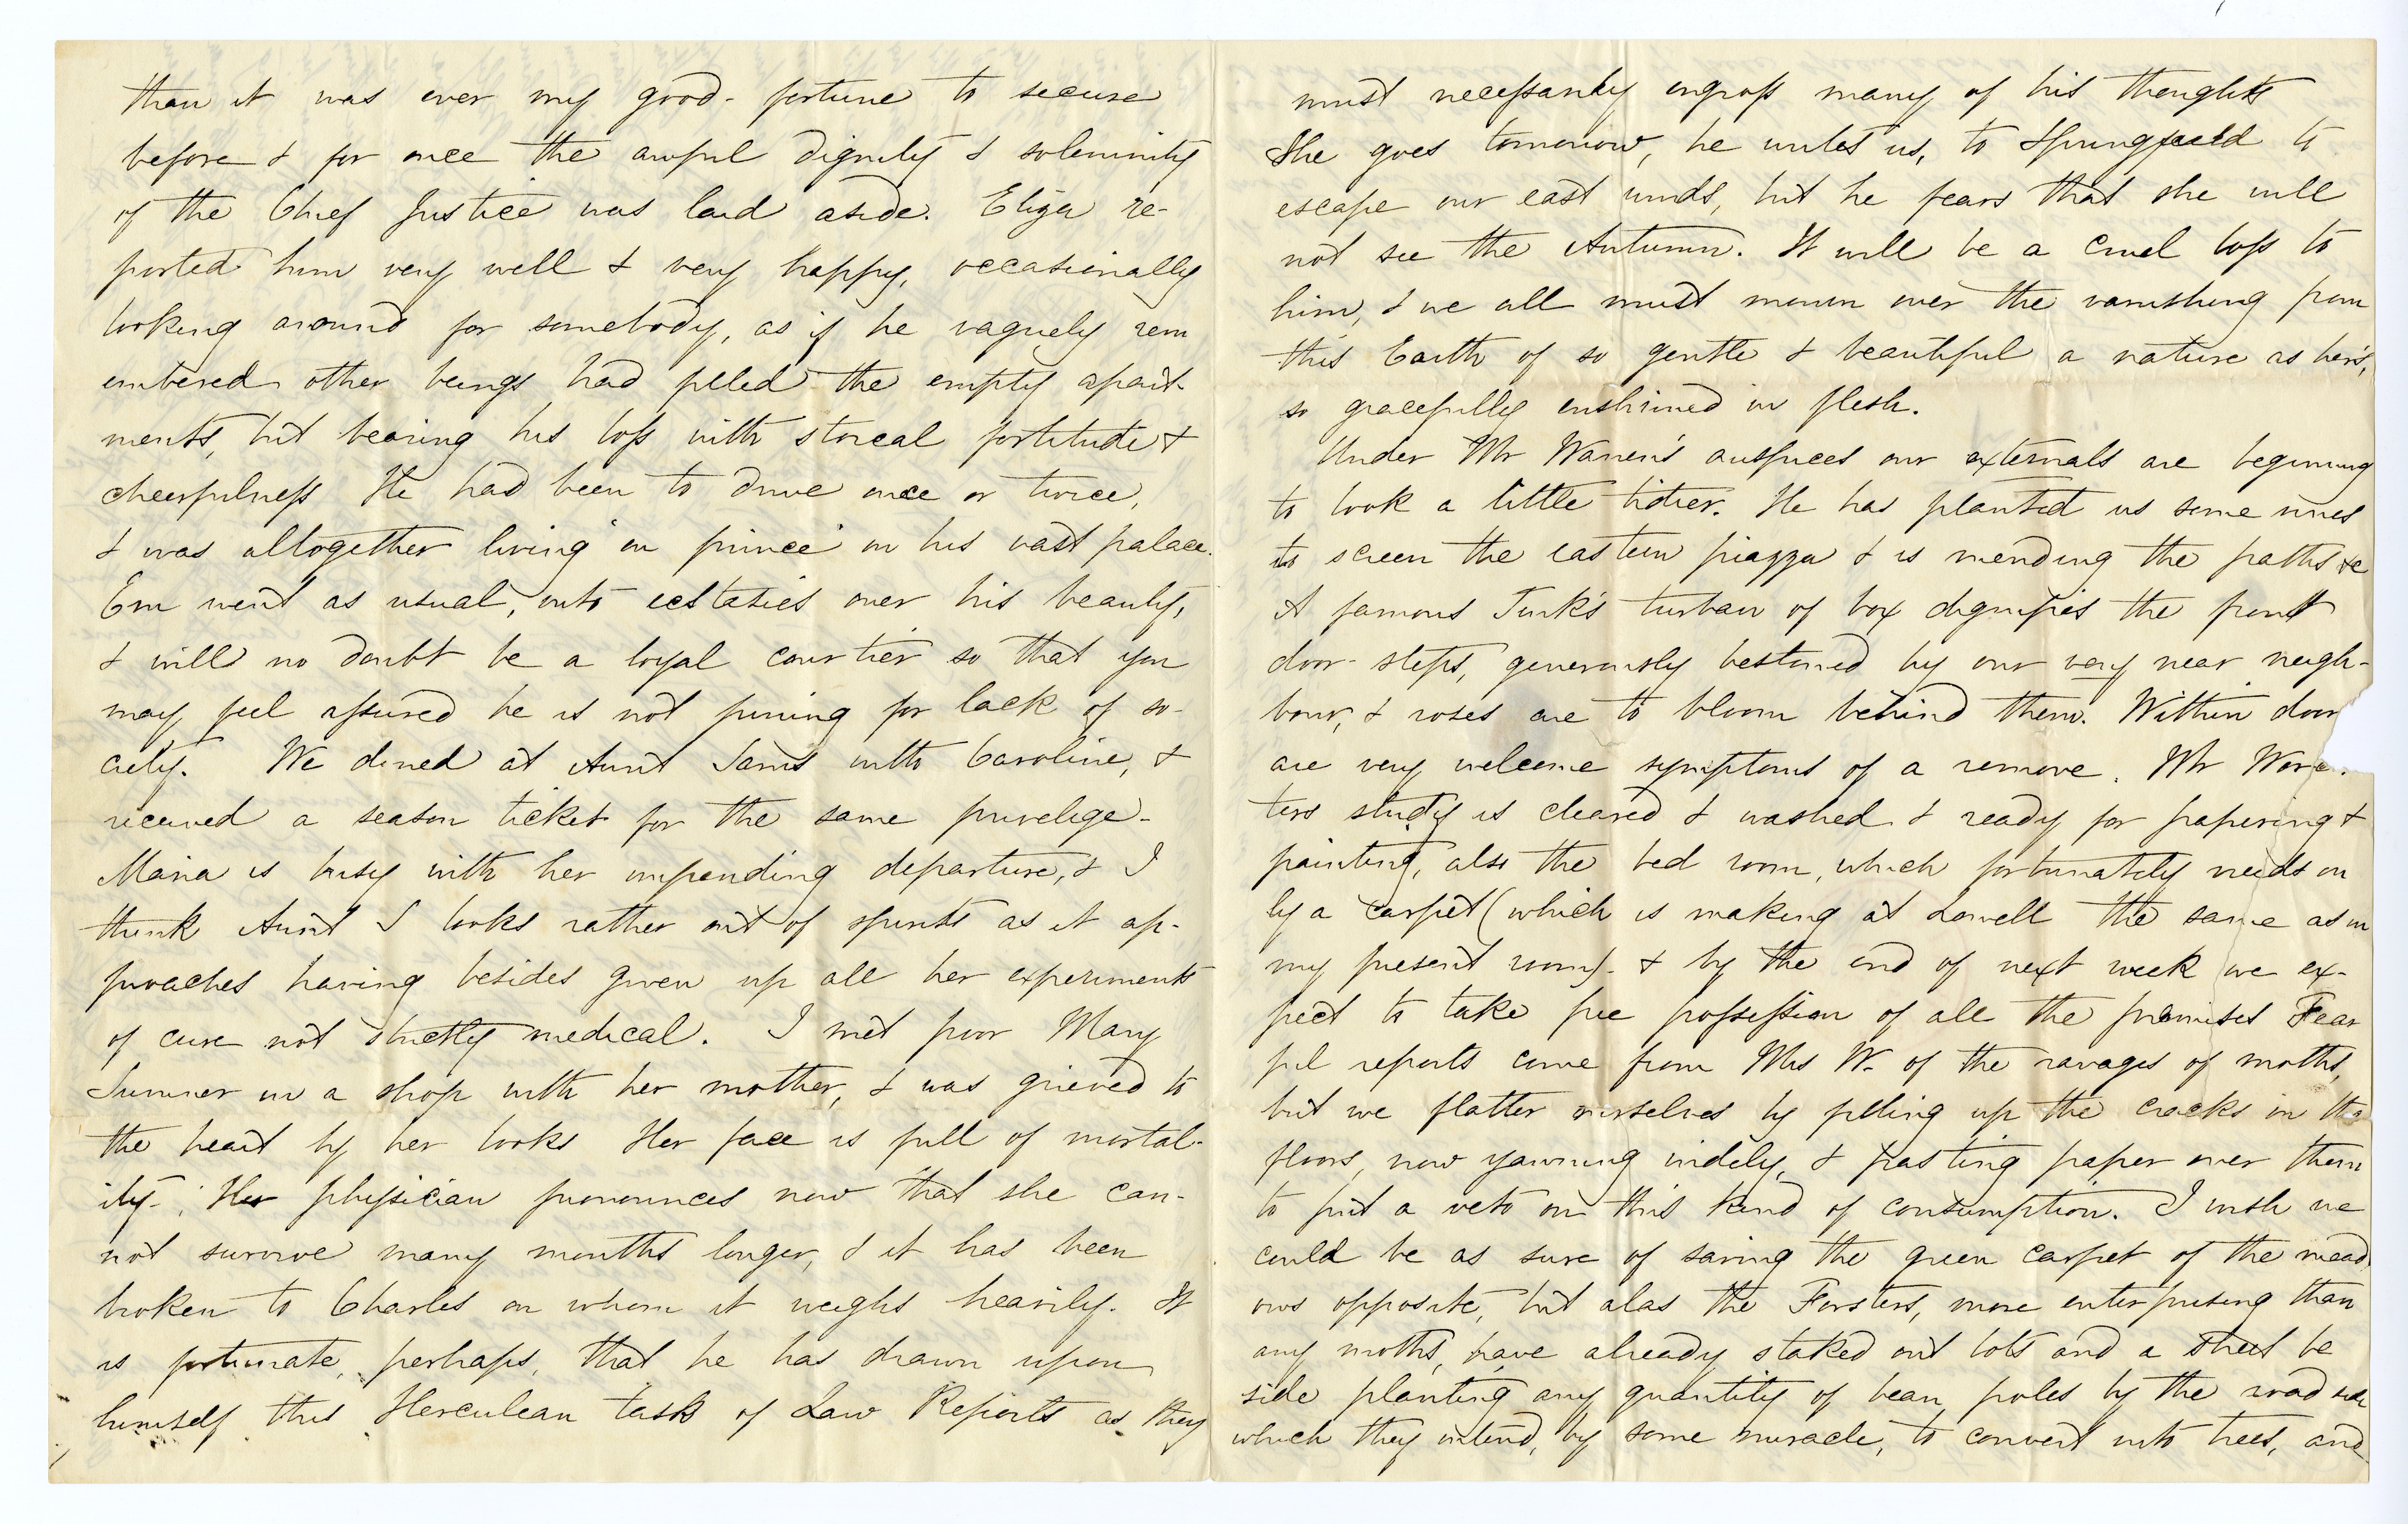 than it was ever my good-fortune to secure
before & for once the awful dignity & solemnity
of the Chief Justice was laid aside. Eliza re-
ported him very well & very happy, occasionally
looking around for somebody, as if he vaguely rem
embered other beings had filled the empty apart-
ments, but bearing his loss with stoical fortitude &
cheerfulness He had been to drive once or twice,
& was altogether living en prince in his vast palace.
Em went as usual, into ecstasies over his beauty,
& will no doubt be a loyal courtier so that you
may feel assured he is not pining for lack of so-
ciety. We dined at Aunt Sam's with Caroline, &
received a season ticket for the same privelige-
Maria is busy with her impending departure, & I
think Aunt S looks rather out of spirits as it ap-
proaches having besides given up all her experiments
of cure not strictly medical. I met poor Mary
Sumner in a shop with her mother, & was grieved to
the heart by her looks Her face is full of mortal-
ity-. Her physician pronounces now that she can-
not survive many months longer, & it has been
broken to Charles on whom it weighs heavily. It
is fortunate, perhaps, that he has drawn upon
himself this Herculean task of Law Reports as they
must necessarily engross many of his thoughts
She goes tomorrow, he writes us, to Springfield to
escape our east winds, but he fears that she will
not see the Autumn. It will be a cruel loss to
him, & we all must mourn over the vanishing from
this Earth of so gentle & beautiful a nature as her's,
so gracefully enshrined in flesh.
Under Mr Warren's auspices our externals are beginning
to look a little tidier. He has planted us some vines
to screen the eastern piazza & is mending the paths &c
A famous Turk's turban of box dignifies the front
door-steps, generously bestowed by our very near neigh-
bour, & roses are to bloom behind them. Within door
are very welcome symptoms of a remove. Mr Worce.
ters study is cleared & washed & ready for papering &
painting, also the bed room, which fortunately needs on
ly a carpet (which is making at Lowell the same as in
my present room)- & by the end of next week we ex-
pect to take free possession of all the premises Fear
ful reports come from Mrs W. of the ravages of moths,
but we flatter ourselves by filling up the cracks in the
floors, now yawning widely, & pasting paper over them
to put a veto on this kind of consumption. I wish we
could be as sure of saving the green carpet of the mead
ows opposite, but alas the Forsters, more enterprising than
any moths, have already staked out lots and a street be
side planting any quantity of bean poles by the road side
which they intend, by some miracle, to convert into trees, and